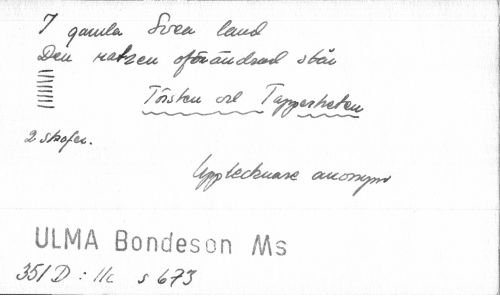 I gamla Svea land
Den ratzen oförändrad står
Törsten och Tapperheten
2 strofer.
Upptecknare anonym
ULMA Bondeson Ms
351 D : 11c s 673